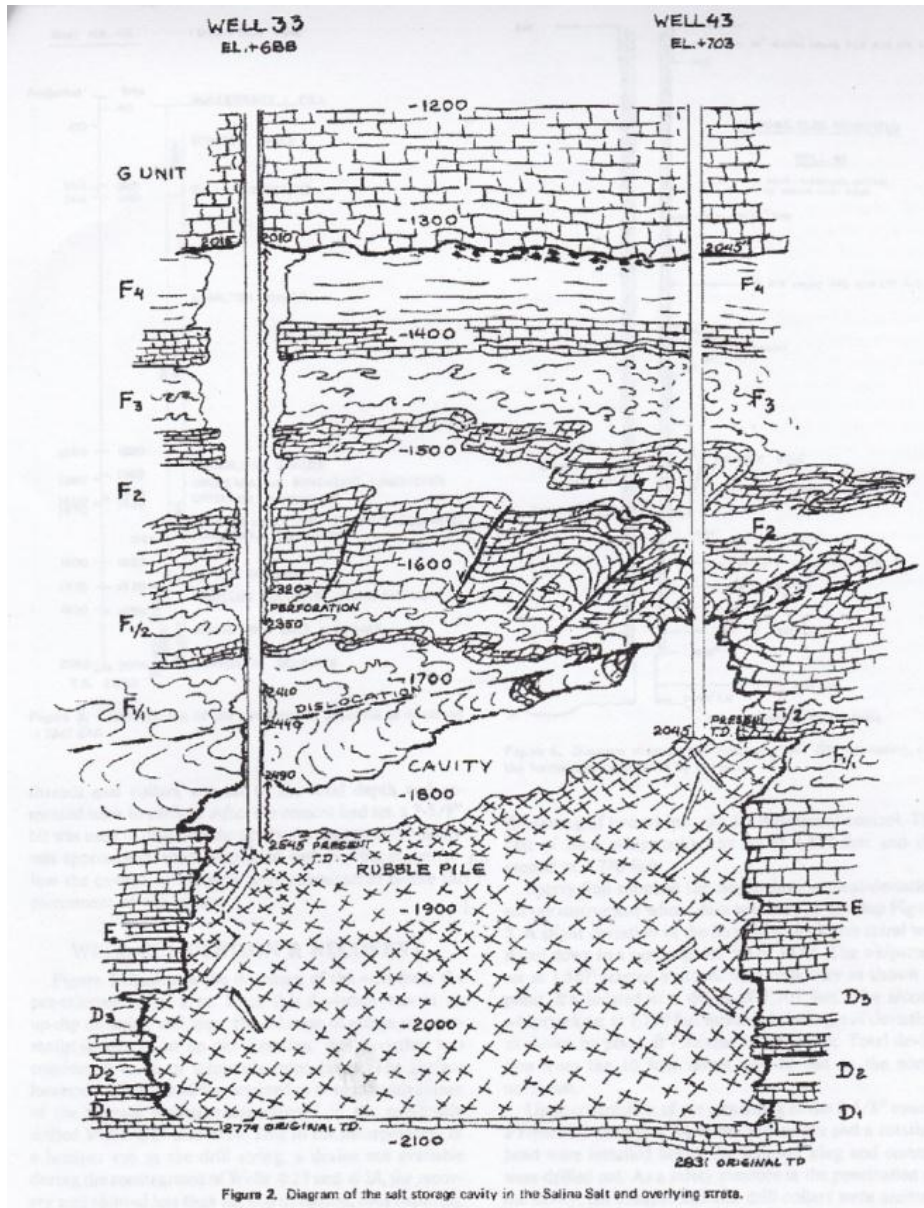 WELL 33
EL.+688
WELL 43
EL.+703
-1200
G UNIT
-1300
2010
2045
F4
F4
-1400
F3
F3
-1500
F2
F2
-1600
2320
PERFORATION
2350
F1/2
-1700
2410
DISLOCATION
F1/2
F1/1
2045 PRESENT
T.D.
CAVITY
F1/1
2490
-1800
2545 PRESENT
T.D.
RUBBLE PILE
-1900
E
E
D3
D3
-2000
D2
D2
D1
D1
2774 ORIGINAL T.D.
-2100
2831 ORIGINAL T.D.
Figure 2. Diagram of the salt storage cavity in the Salina Salt and overlying strata.